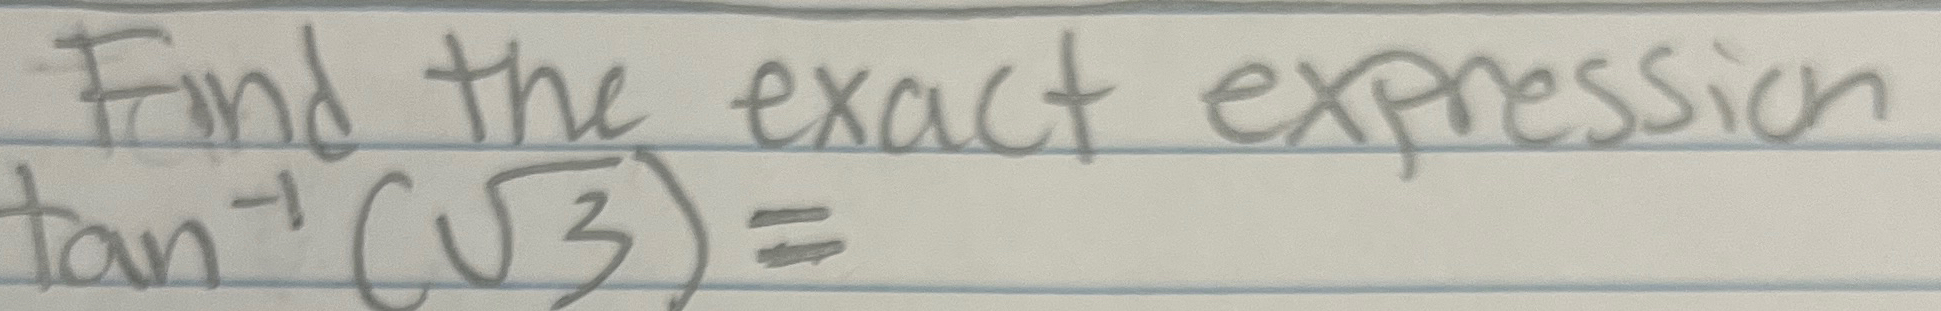 Find the exact expression
tan⁻¹(√3) =